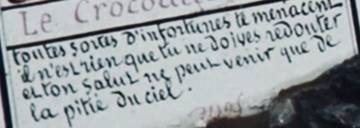 Le Crocod
toutes sortes d'infortunes te menacent
il n'est rien que tu ne doives redouter
et ton salut ne peut venir que de
la pitié du ciel.